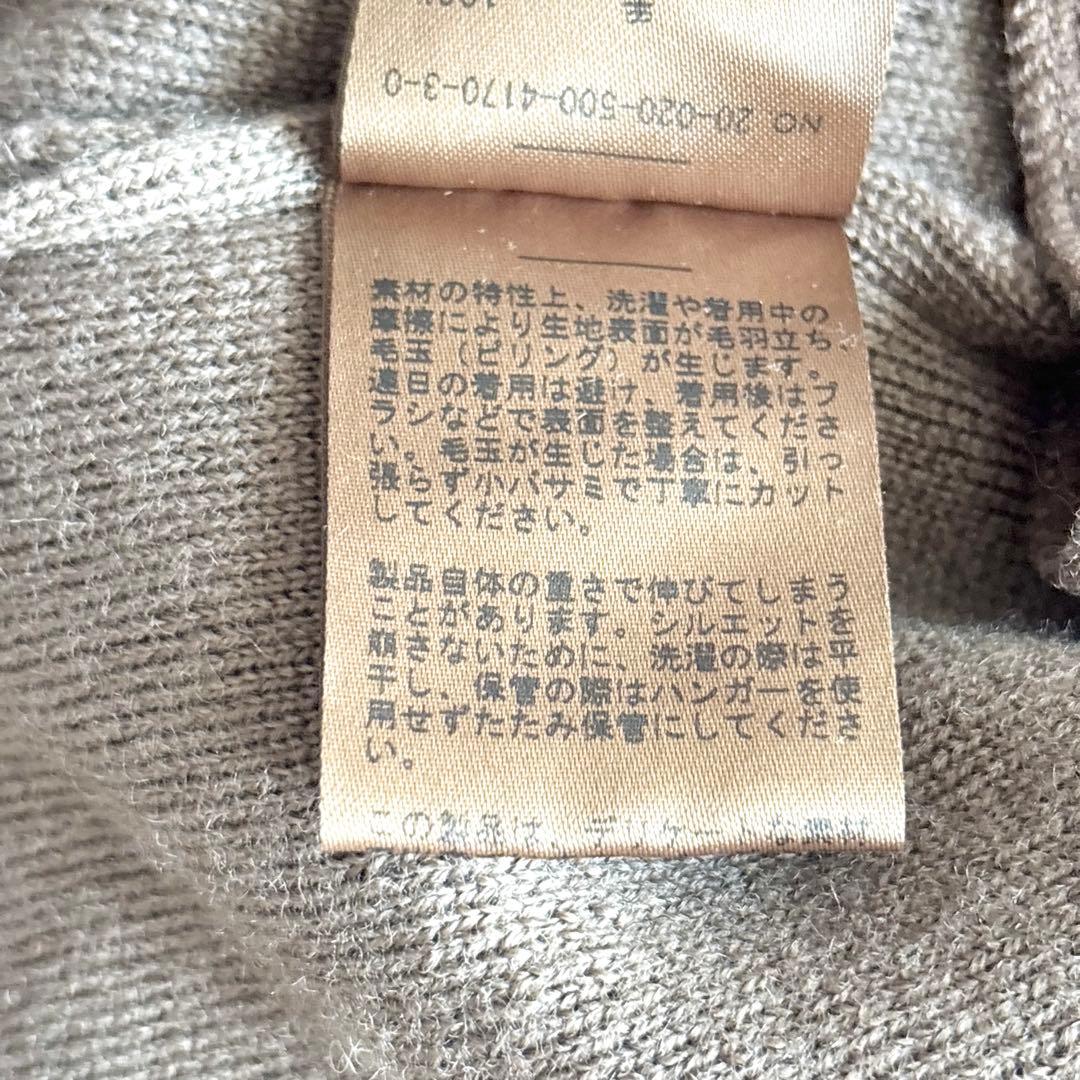 NO 20-020-500-4170-3-0
素材の特性上、洗濯や着用中の
摩擦により生地表面が毛羽立ち、
毛玉(ピリング)が生じます。
連日の着用は避け、着用後はブ
ラシなどで表面を整えてくださ
い。毛玉が生じた場合は、引っ
張らず小バサミで丁寧にカット
してください。
製品自体の重さで伸びてしまう
ことがあります。シルエットを
崩さないために、洗濯の際は平
干し、保管の際はハンガーを使
用せずたたみ保管にしてくださ
い。
この製品は、デリケートな素材